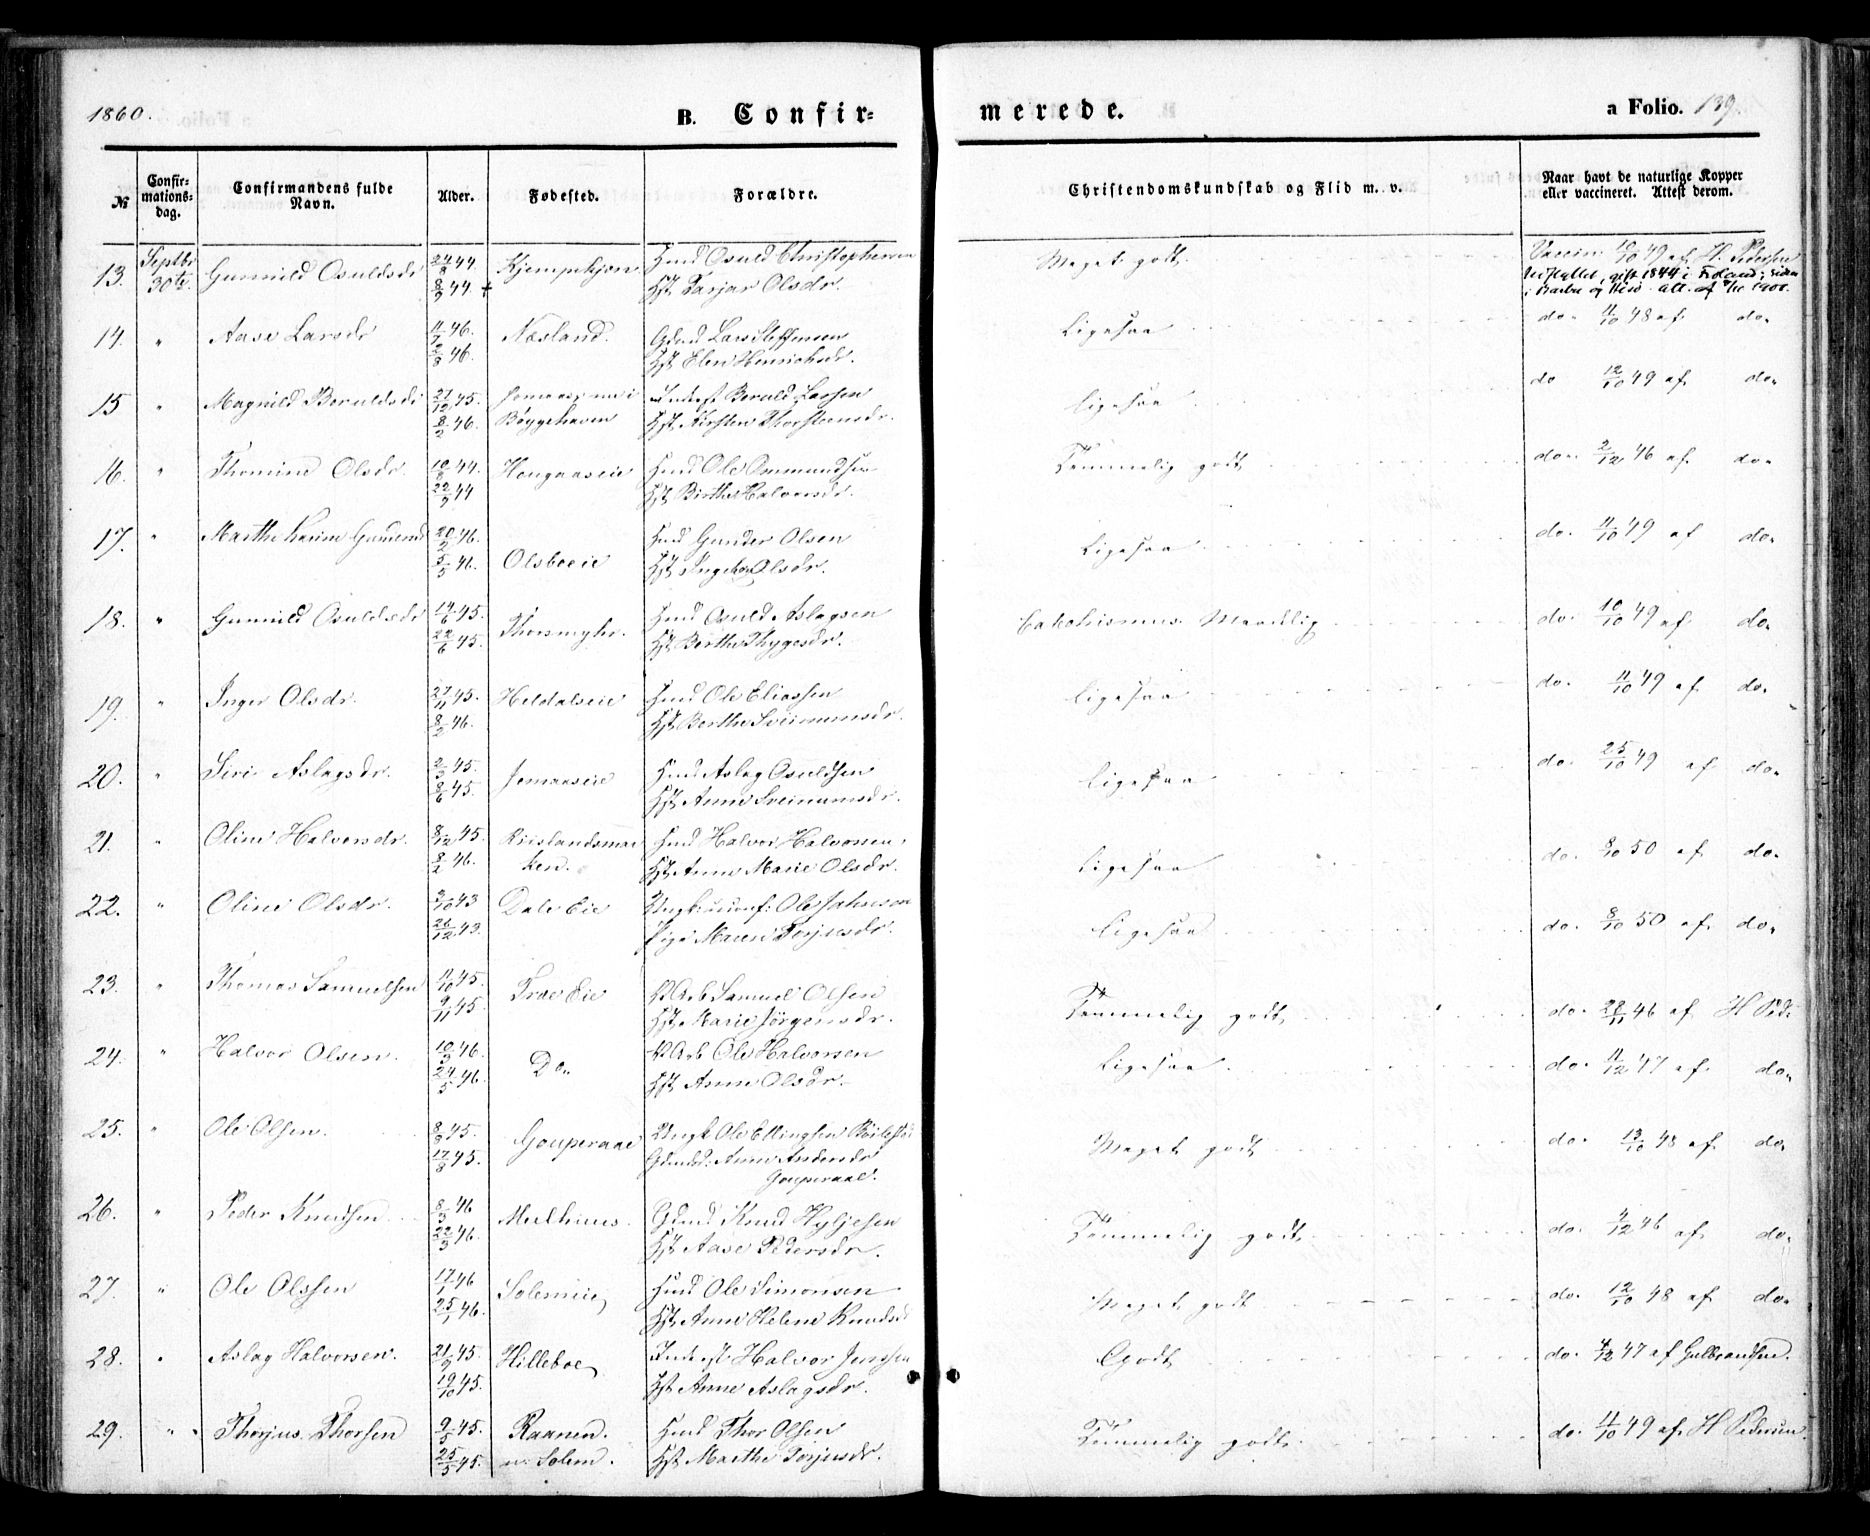 1860.
B. Confir-
merede.
a Folio. 139.
№
Confir-
mations-
dag.
Confirmandens fulde
Navn.
Alder.
Fødested.
Forældre.
Christendomskundskab og Flid m. v.
Naar havt de naturlige Kopper
eller vaccineret. Attest derom.
13. Septbr 30te Gunnild Osuldsdr 24/8 44. 8/9 44. Kjempekjern Osuld Christophersen
Hst Tarjer Olsdr.
Meget godt. Vaccin: 10/10 49 af H. Pedersen
14. " Aase Larsdr 11/7 46. 2/8 46. Næsland. Gdmd Lars Steffensen
Hst Elen Henrichsdr.
Ligesaa do. 11/10 48 af do.
15 " Magnild Beruldsdr 21/12 45. 8/2 46. Bøggehaven Inderst Beruld Larsen
Hst Kirsten Thorsteensdr.
Ligesaa do 12/10 49 af do.
16. " Thomine Olsdr. 10/8 44. 22/9 44 Hougaaseie Hmd Ole Osmundsen
Hst Birthe Halvorsdr.
Temmelig godt do. 2/12 46 af do.
17. " Marthe Karine 20/2 46. 5/5 46. Olsboeie Hmd Gunder Olsen
Hst Ingeborg Olsdr.
Ligesaa do. 11/10 49 af do.
18. " Gunnild Osuldsdr 14/6 45. 22/6 45. Thorsmyhr. Hmd Osuld Aslagsen
Hst Berthe Thygesdr.
Catechismus Maadelig do. 10/10 49 af do.
19. " Inger Olsdr. 27/11 45. 8/2 46. Heldalseie Hmd Ole Eliassen
Hst Berthe Sveinumsdr.
Ligesaa do. 11/10 49 af do.
20. " Siri Aslagsdr. 2/3 45. 8/6 45. Jomaaseie Hmd Aslag Osuldsen
Hst Anne Sveinumsdr.
Ligesaa do. 25/10 49 af do.
21. " Oline Halvorsdr. 8/12 45. 8/2 46. Riislandsmar
ken. Hmd Halvor Halvorsen.
Hst Anne Marie Olsdr.
Ligesaa do. 8/10 50 af do.
22. " Oline Olsdr. 3/10 43 26/12 43. Dale Eie Ungk: Ole Johnsen
Pige Maren Torjusdr.
Ligesaa do. 8/10 50 af do.
23. " Thomas Samuelsen 11/10 45. 9/11 45. Trae Eie Samuel Olsen
Hst Marie Jørgensdr.
Temmelig godt do. 28/11 46 af H Ped:
24. " Halvor Olsen. 10/3 46. 24/5 46. Do. Ole Halvorsen
Hst Anne Olsdr.
Ligesaa. do. 11/12 47 af do.
25. " Ole Olsen. 8/8 45. 17/8 45. Gouperaae Ungk Ole Ellingsen
Anne Andersdr
Gouperaae.
Meget godt do. 13/10 48 af do.
26. " Peder Knudsen 8/3 46 22/3 46. Mulhuus. Gdmd Knud Hyljesen
Hst Aase Pedersdr.
Temmelig godt. do. 4/12 46 af do.
27. " Ole Olssen 17/1 46 25/1 46. Solemeie Hmd Ole Simonsen
Hst Anne Helene Knudsd
Meget godt do. 12/10 48 af do.
28. " Aslag Halvorsen. 21/9 45. 19/10 45. Hilleboe Inderst Halvor Jensen
Hst Anne Aslagsdr.
Godt do. 4/12 47 af Gulbrandsen.
29. " Thorjus Thorsen 9/5 45. 25/5 45. Raanen.
u: Solem. Hmd Thor Olsen
Hst Marthe Torjusdr.
Temmelig godt. do. 11/10 49 af H Pedersen.